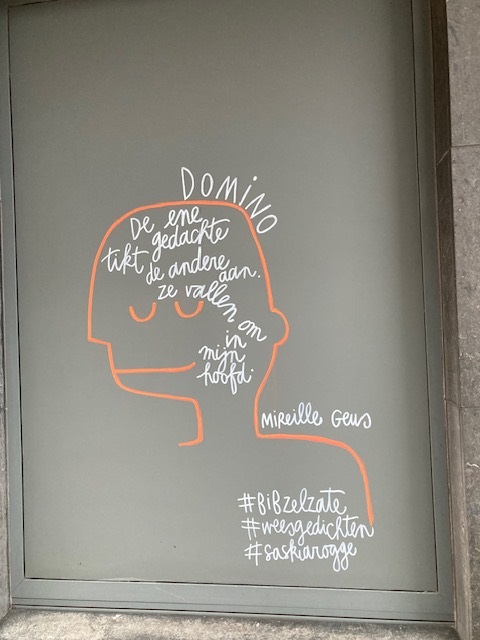 DOMiNO
De ene
gedachte
tikt de andere
aan.
ze vallen om
in
mijn
hoofd.
Mireille Geus
#BiBzelzate
#weesgedichten
#saskiarogge